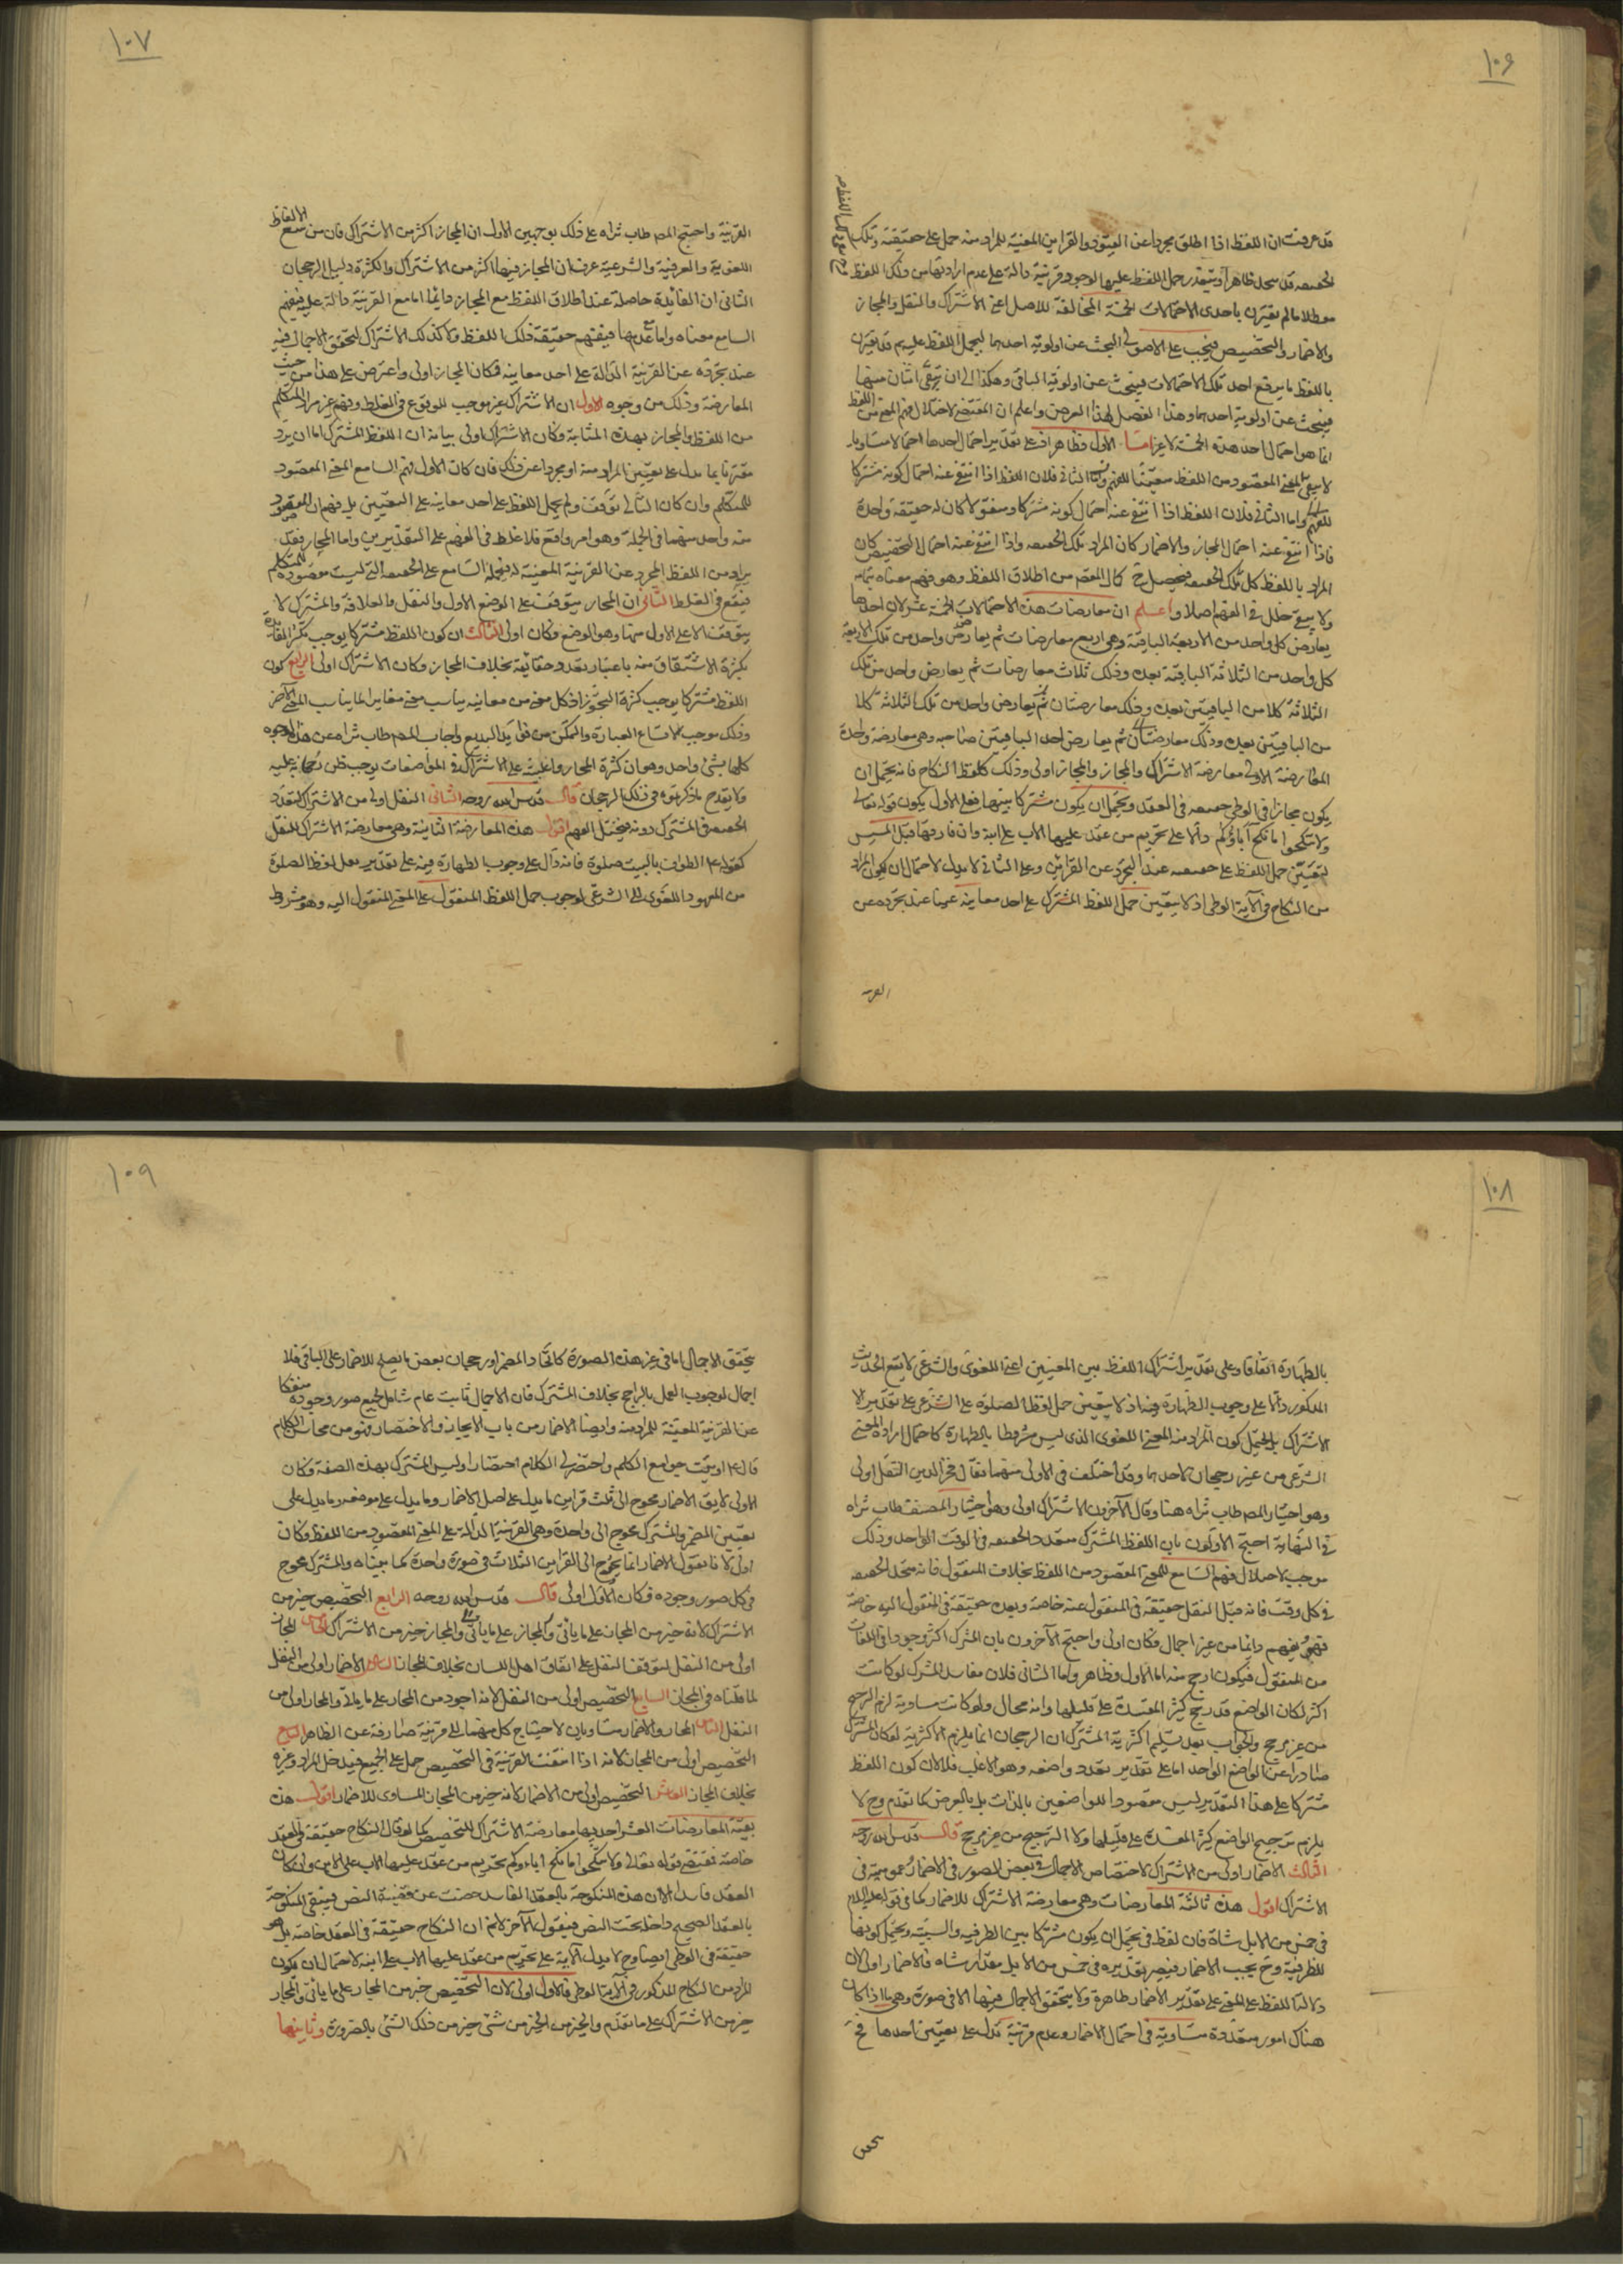 ١٠٦
قد عرفت ان اللفظ اذا اطلق مجردا عن القيود والقراين المعينة للمراد منه حمل على حقيقته وتلك
الحقيقه قد ظاهرا ويتعذر حمل اللفظ عليها لوجود قرينة دالة على عدم ارادتها من ذلك اللفظ
معطلا ما لم يقترن باحدى الاحتمالات الخمسة المخالفة للاصل اعنى الاشتراك والنقل والمجاز
والاضمار والتخصيص فيجب على الاصولى البحث عن اولوية احدهما ليحمل اللفظ عليه ثم قد يقترن
باللفظ ما يرفع احد تلك الاحتمالات فيبحث عن اولوية الباقى وهكذا الى ان يبقى اثنان منها
فيبحث عن اولوية احدهما وهذا الفصل لهذا الغرض واعلم ان المقتضى لاختلال فهم المعنى من اللفظ
انما هو احتمال احد هذه الخمسة لا غير اما الاول فظاهر اذ على تقدير احتمال احدها احتمالا مساويا
لا يبقى المعنى المقصود من اللفظ متعينا للفهم واما الثانى فلان اللفظ اذا انتفى عنه احتمال كونه مشتركا
للفهم واما الثانى فلان اللفظ اذا انتفى عنه احتمال كونه مشتركا ومنقولا كان له حقيقة واحدة
فاذا انتفى عنه احتمال المجاز والاضمار كان المراد تلك الحقيقه واذا انتفى عنه احتمال التخصيص كان
المراد باللفظ كل تلك الحقيقه فيحصل ح كمال الفهم من اطلاق اللفظ وهو فهم معناه بتمامه
ولا يبقى خلل فى الفهم اصلا واعلم ان معارضات هذه الاحتمالات الخمسة عشر لان احدها
يعارض كل واحد من الاربعة الباقية وهى اربع معارضات ثم يعارض واحد من تلك الاربعة
كل واحد من الثلاثة الباقية بعده وذلك ثلاث معارضات ثم يعارض واحد من تلك
الثلاثة كلا من الباقيين بعده وذلك معارضتان ثم يعارض واحد من تلك الثلاثة كلا
من الباقيين بعده وذلك معارضتان ثم يعارض احد الباقيين صاحبه وهى معارضة واحدة
المعارضة الاولى معارضة الاشتراك والمجاز والمجاز اولى وذلك كلفظ النكاح فانه يحتمل ان
يكون مجازا فى الوطى حقيقه فى العقد ويحتمل ان يكون مشتركا بينهما فعلى الاول يكون قوله تعالى
ولا تنكحوا ما نكح آباؤكم دالا على تحريم من عقد عليها الاب على ابنه وان فارقها قبل المسيس
لتعين حمل اللفظ على حقيقته عند التجرد عن القراين وعلى الثانى لا يدل لاحتمال ان يكون المراد
من النكاح فى الآية الوطى اذ لا يتعين حمل اللفظ المشترك على احد معانيه عينا عند تجرده عن
القرينه
١٠٧
القرينة واحتج المصـ طاب ثراه على ذلك بوجهين الاول ان المجاز اكثر من الاشتراك فان من تتبع الالفاظ
اللغوية والعرفية والشرعية عرف ان المجاز فيها اكثر من الاشتراك والكثرة دليل الرجحان
الثانى ان الفائدة حاصلة عند اطلاق اللفظ مع المجاز دائما اما مع القرينة دالة عليه فيفهم
السامع معناه واما مع عدمها فيفهم حقيقة ذلك اللفظ ولا كذلك الاشتراك لتحقق الاجمال فيه
عند تجرده عن القرينة الدالة على احد معانيه فكان المجاز اولى واعترض على هذا من حيث
المعارضة وذلك من وجوه الاول ان الاشتراك غير موجب للوقوع فى الغلط وفهم غير مراد المتكلم
من اللفظ والمجاز بهذه المثابة فكان الاشتراك اولى بيانه ان اللفظ المشترك اما ان يرد
مقترنا بما يدل على تعيين المراد منه او مجردا عن ذلك فان كان الاول فهم السامع المعنى المقصود
للمتكلم وان كان الثانى توقف ولم يحمل اللفظ على احد معانيه على التعيين بل فهم ان المقصود
منه واحد منهما فى الجملة وهو امر واقع فلا غلط فى الفهم على التقديرين واما المجاز فقد
يراد من اللفظ المجرد عن القرينة المعينة له فيحمله السامع على الحقيقه التى ليست مقصودة للمتكلم
فيقع فى الغلط الثانى ان المجاز يتوقف على الوضع الاول والنقل والعلاقة والمشترك لا
يتوقف الا على الاول منها وهو الوضع وكان اولى الثالث ان كون اللفظ مشتركا يوجب تكثر الفائدة
بكثرة الاشتقاق منه باعتبار تعدد حقائقه بخلاف المجاز وكان الاشتراك اولى الرابع كون
اللفظ مشتركا يوجب كثرة التجوز اذ كل معنى من معانيه يناسب معنى مغاير لما يناسب المعنى الآخر
وذلك موجب لاتساع العبارة والتمكن من فوايد البديع واجاب المصـ طاب ثراه عن هذه الوجوه
كلها بشئ واحد وهو ان كثرة المجاز واغلبيته على الاشتراك فى المواضعات يوجب ظن رجحانه عليه
ولا يقدح ما ذكرتموه فى ذلك الرجحان قال قدس الله روحه الثانى النقل اولى من الاشتراك لتعدد
الحقيقه فى المشترك دونه فيختل الفهم اقول هذه المعارضة الثانية وهى معارضة الاشتراك للنقل
كقوله ع الطواف بالبيت صلوة فانه دال على وجوب الطهارة فيه على تقدير نقل لفظ الصلوة
من المعهود اللغوى الى الشرعى لوجوب حمل اللفظ المنقول على المعنى المنقول اليه وهو مشروط
١٠٨
بالطهارة اتفاقا وعلى تقدير اشتراك اللفظ بين المعنيين اعنى اللغوى والشرعى لا يبقى الحديث
المذكور دالا على وجوب الطهارة فيه اذ لا يتعين حمل لفظ الصلوة على الشرعى على تقدير الا
الاشتراك بل يحتمل كون المراد منه المعنى اللغوى الذى ليس مشروطا بالطهارة كاحتمال ارادة المعنى
الشرعى من غير رجحان لاحدهما وقد اختلف فى الاولى منهما فقال فخر الدين النقل اولى
وهو اختيار المصـ طاب ثراه هنا وقال الآخرون الاشتراك اولى وهو اختيار المصنف طاب ثراه
فى النهاية احتج الاولون بان اللفظ المشترك متعدد الحقيقه فى الوقت الواحد وذلك
موجب لاختلال فهم السامع للمعنى المقصود من اللفظ بخلاف المنقول فانه متحد الحقيقه
فى كل وقت فانه قبل النقل حقيقة فى المنقول عنه خاصة وبعده حقيقة فى المنقول اليه خاصة
فهو يفهم دائما من غير اجمال فكان اولى واحتج الآخرون بان المشترك اكثر وجودا فى اللغات
من المنقول فيكون ارجح منه اما الاول فظاهر واما الثانى فلان مفاسد المشترك لو كانت
اكثر لكان الواضع قد رجح كثير المفسدة على قليلها وانه محال ولو كانت مساوية لزم الترجيح
من غير مرجح والجواب بعد تسليم اكثرية المشترك ان الرجحان انما يلزم الاكثرية لو كان المشترك
صادرا عن الواضع الواحد اما على تقدير تعدد واضعه وهو الاغلب فلا لان كون اللفظ
مشتركا على هذا التقدير ليس مقصودا للواضعين بالذات بل بالعرض كما تقدم وح لا
يلزم ترجيح الواضع كثير المفسدة على قليلها ولا الترجيح من غير مرجح قال قدس الله روحه
الثالث الاضمار اولى من الاشتراك لاختصاص الاجمال ببعض الصور فى الاضمار وعموميته فى
الاشتراك اقول هذه ثالثة المعارضات وهى معارضة الاشتراك للاضمار كما فى قوله عليه السلام
فى خمس من الابل شاة فان لفظ فى يحتمل ان يكون مشتركا بين الظرفيه والسببية ويحتمل كونها
للظرفية وح يجب الاضمار فيصير تقديره فى خمس من الابل مقدار شاة فالاضمار اولى لان
دلالة اللفظ على المعنى على تقدير الاضمار ظاهرة ولا يتحقق الاجمال فيها الا فى صورة وهى ما اذا كان
هناك امور متعددة متساوية فى احتمال الاضمار وعدم قرينة تدل على تعيين احدها فح
يتحقق
١٠٩
يتحقق الاجمال اما فى غير هذه الصورة كاتحاد المضمر او رجحان بعض ما يصلح للاضمار على الباقى فلا
اجمال لوجوب العمل بالراجح بخلاف المشترك فان الاجمال ثابت عام شامل لجميع صور وجوده منفكا
عن القرينة المعينة للمراد منه وايضا الاضمار من باب الايجاز والاختصار فهو من محاسن الكلام
قال ع اوتيت جوامع الكلم واختصر لى الكلام اختصارا وليس المشترك بهذه الصفة وكان
الاولى لا يق الاضمار محوج الى ثلث قراين ما يدل على اصل الاضمار وما يدل على موضعه وما يدل على
تعيين المضمر والمشترك محوج الى واحدة وهى القرينة الدالة على المعنى المقصود من اللفظ وكان
اولى لانا نقول الاضمار انما يحوج الى القراين الثلاث فى صورة واحدة كما بيناه والمشترك محوج
فى كل صور وجوده فكان الاول اولى قال قدس الله روحه الرابع التخصيص خير من
الاشتراك لانه خير من المجاز على ما ياتى والمجاز خير من الاشتراك الخامس المجاز
اولى من النقل لتوقف النقل على اتفاق اهل اللسان بخلاف المجاز السادس الاضمار اولى من النقل
لما قلناه فى المجاز السابع التخصيص اولى من النقل لانه اجود من المجاز على ما ياتى والمجاز اولى من
النقل الثامن المجاز والاضمار متساويان لاحتياج كل منهما الى قرينة صارفة عن الظاهر التاسع
التخصيص اولى من المجاز لانه اذا انتفت القرينة فى التخصيص حمل على الجميع فيدخل المراد وغيره
بخلاف المجاز العاشر التخصيص اولى من الاضمار لانه خير من المجاز المساوى للاضمار اقول هذه
بقية المعارضات العشر احديها معارضة الاشتراك للتخصيص كما لو قال النكاح حقيقة فى العقد
خاصة فيقتضى قوله تعالى ولا تنكحوا ما نكح آباؤكم تحريم من عقد عليها الاب على الابن وان كان
العقد فاسدا لان هذه المنكوحة بالعقد الفاسد خصت عن قضية النص فيبقى المنكوحة
بالعقد الصحيح داخلة تحت النص فيقول الآخر لا نم ان النكاح حقيقة فى العقد خاصة بل هو
حقيقة فى الوطى ايضا وح لا يدل الآية على تحريم من عقد عليها الاب على ابنه لاحتمال ان يكون
المراد من النكاح المذكور فى الآية الوطى فالاول اولى لان التخصيص خير من المجاز على ما ياتى والمجاز
خير من الاشتراك على ما تقدم والخير من الخير من شئ خير من ذلك الشئ بالضرورة وثانيها